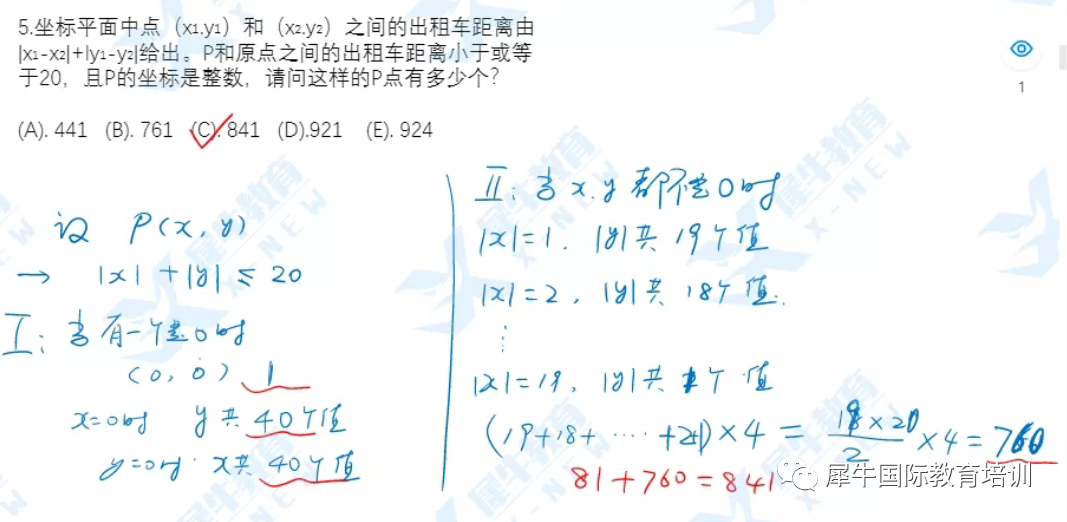 5.坐标平面中点（x₁.y₁）和（x₂.y₂）之间的出租车距离由
|x₁-x₂|+|y₁-y₂|给出。P和原点之间的出租车距离小于或等
于20，且P的坐标是整数，请问这样的P点有多少个?
(A). 441 (B). 761 (C). 841 (D).921 (E). 924
1
设 P(x, y)
→ |x| + |y| ≤ 20
I: 当有一个是0时
(0, 0) 1
x=0时 y共40个值
y=0时 x共40个值
II: 当x.y都不是0时
|x|=1. |y|共19个值
|x|=2, |y|共18个值.
⋮
|x|=19, |y|共1个值
(19+18+ ⋯ +2+1)×4 = 19×20/2 ×4 = 760
81+760=841
犀牛国际教育培训
犀牛教育
X-NEW